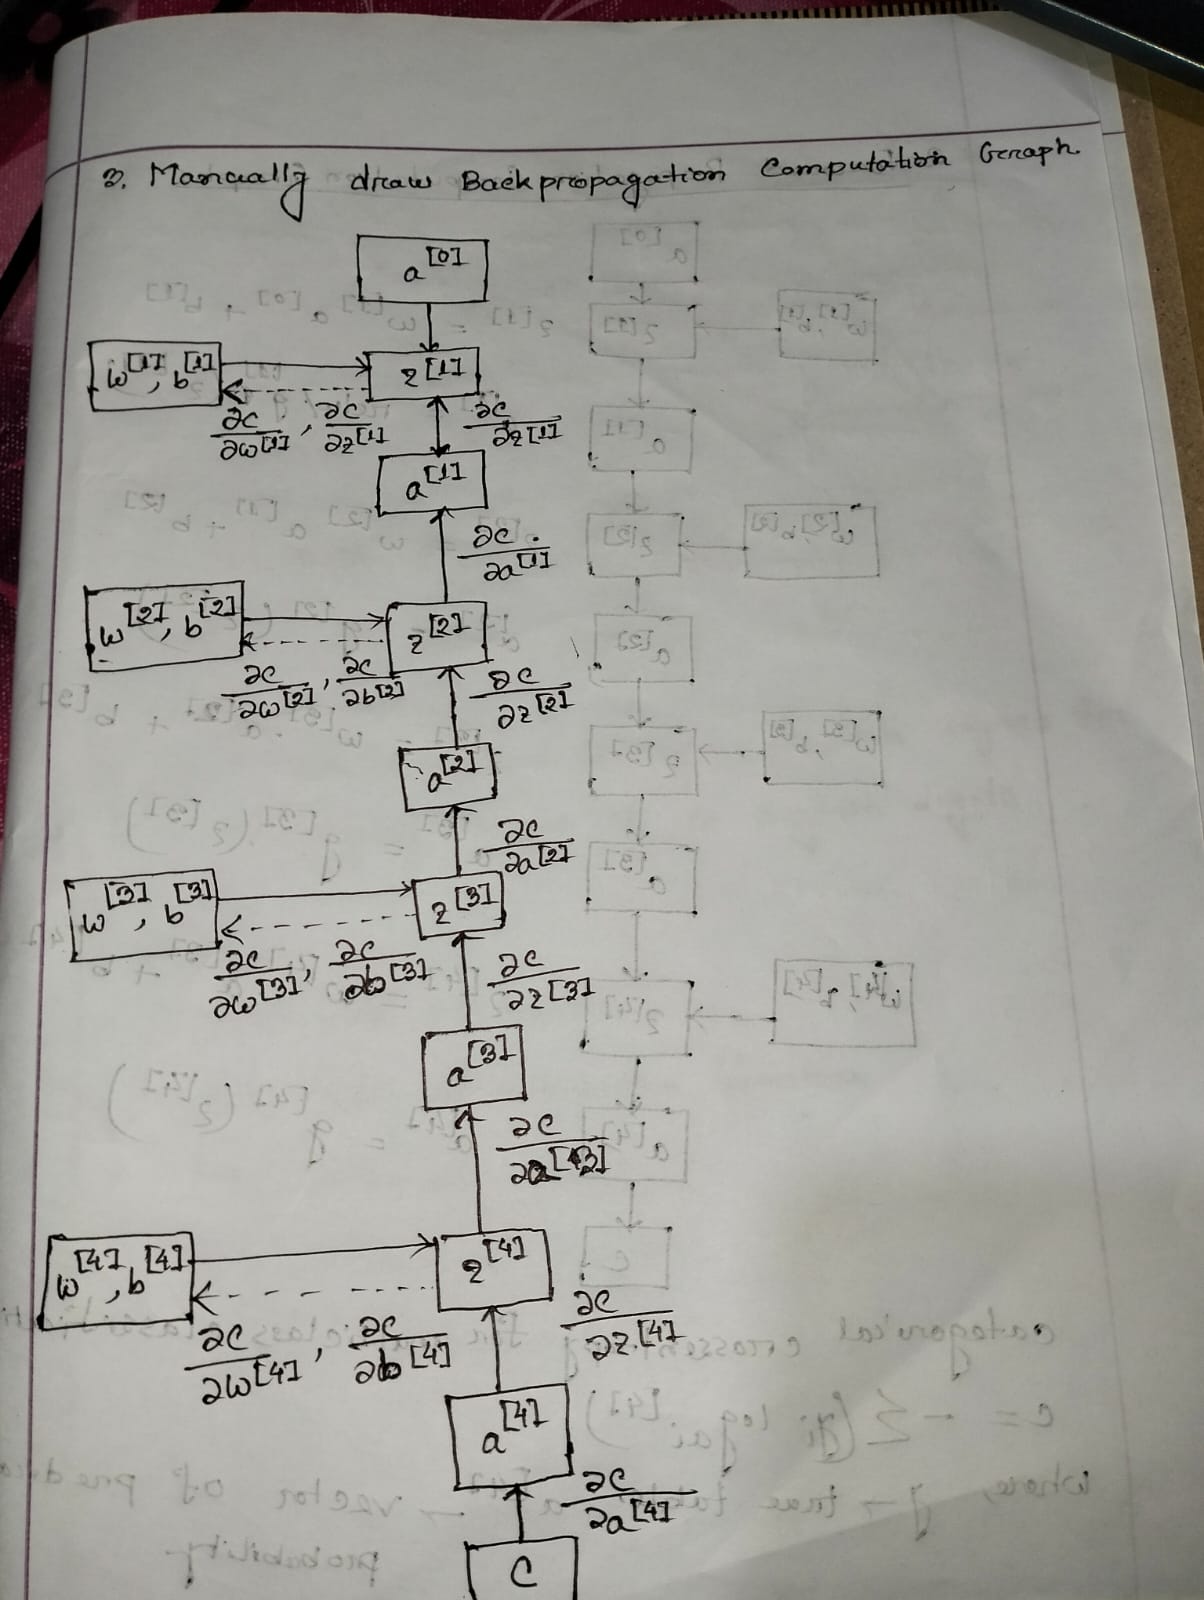 3. Manually draw Backpropagation Computation Graph.
a[0]
w[1], b[1] z[1]
∂c/∂w[1], ∂c/∂z[1] ∂c/∂z[1]
a[1]
∂c/∂a[1]
w[2], b[2] z[2]
∂c/∂w[2], ∂c/∂b[2] ∂c/∂z[2]
a[2]
∂c/∂a[2]
w[3], b[3] z[3]
∂c/∂w[3], ∂c/∂b[3] ∂c/∂z[3]
a[3]
∂c/∂a[3]
w[4], b[4] z[4]
∂c/∂w[4], ∂c/∂b[4] ∂c/∂z[4]
a[4]
∂c/∂a[4]
C